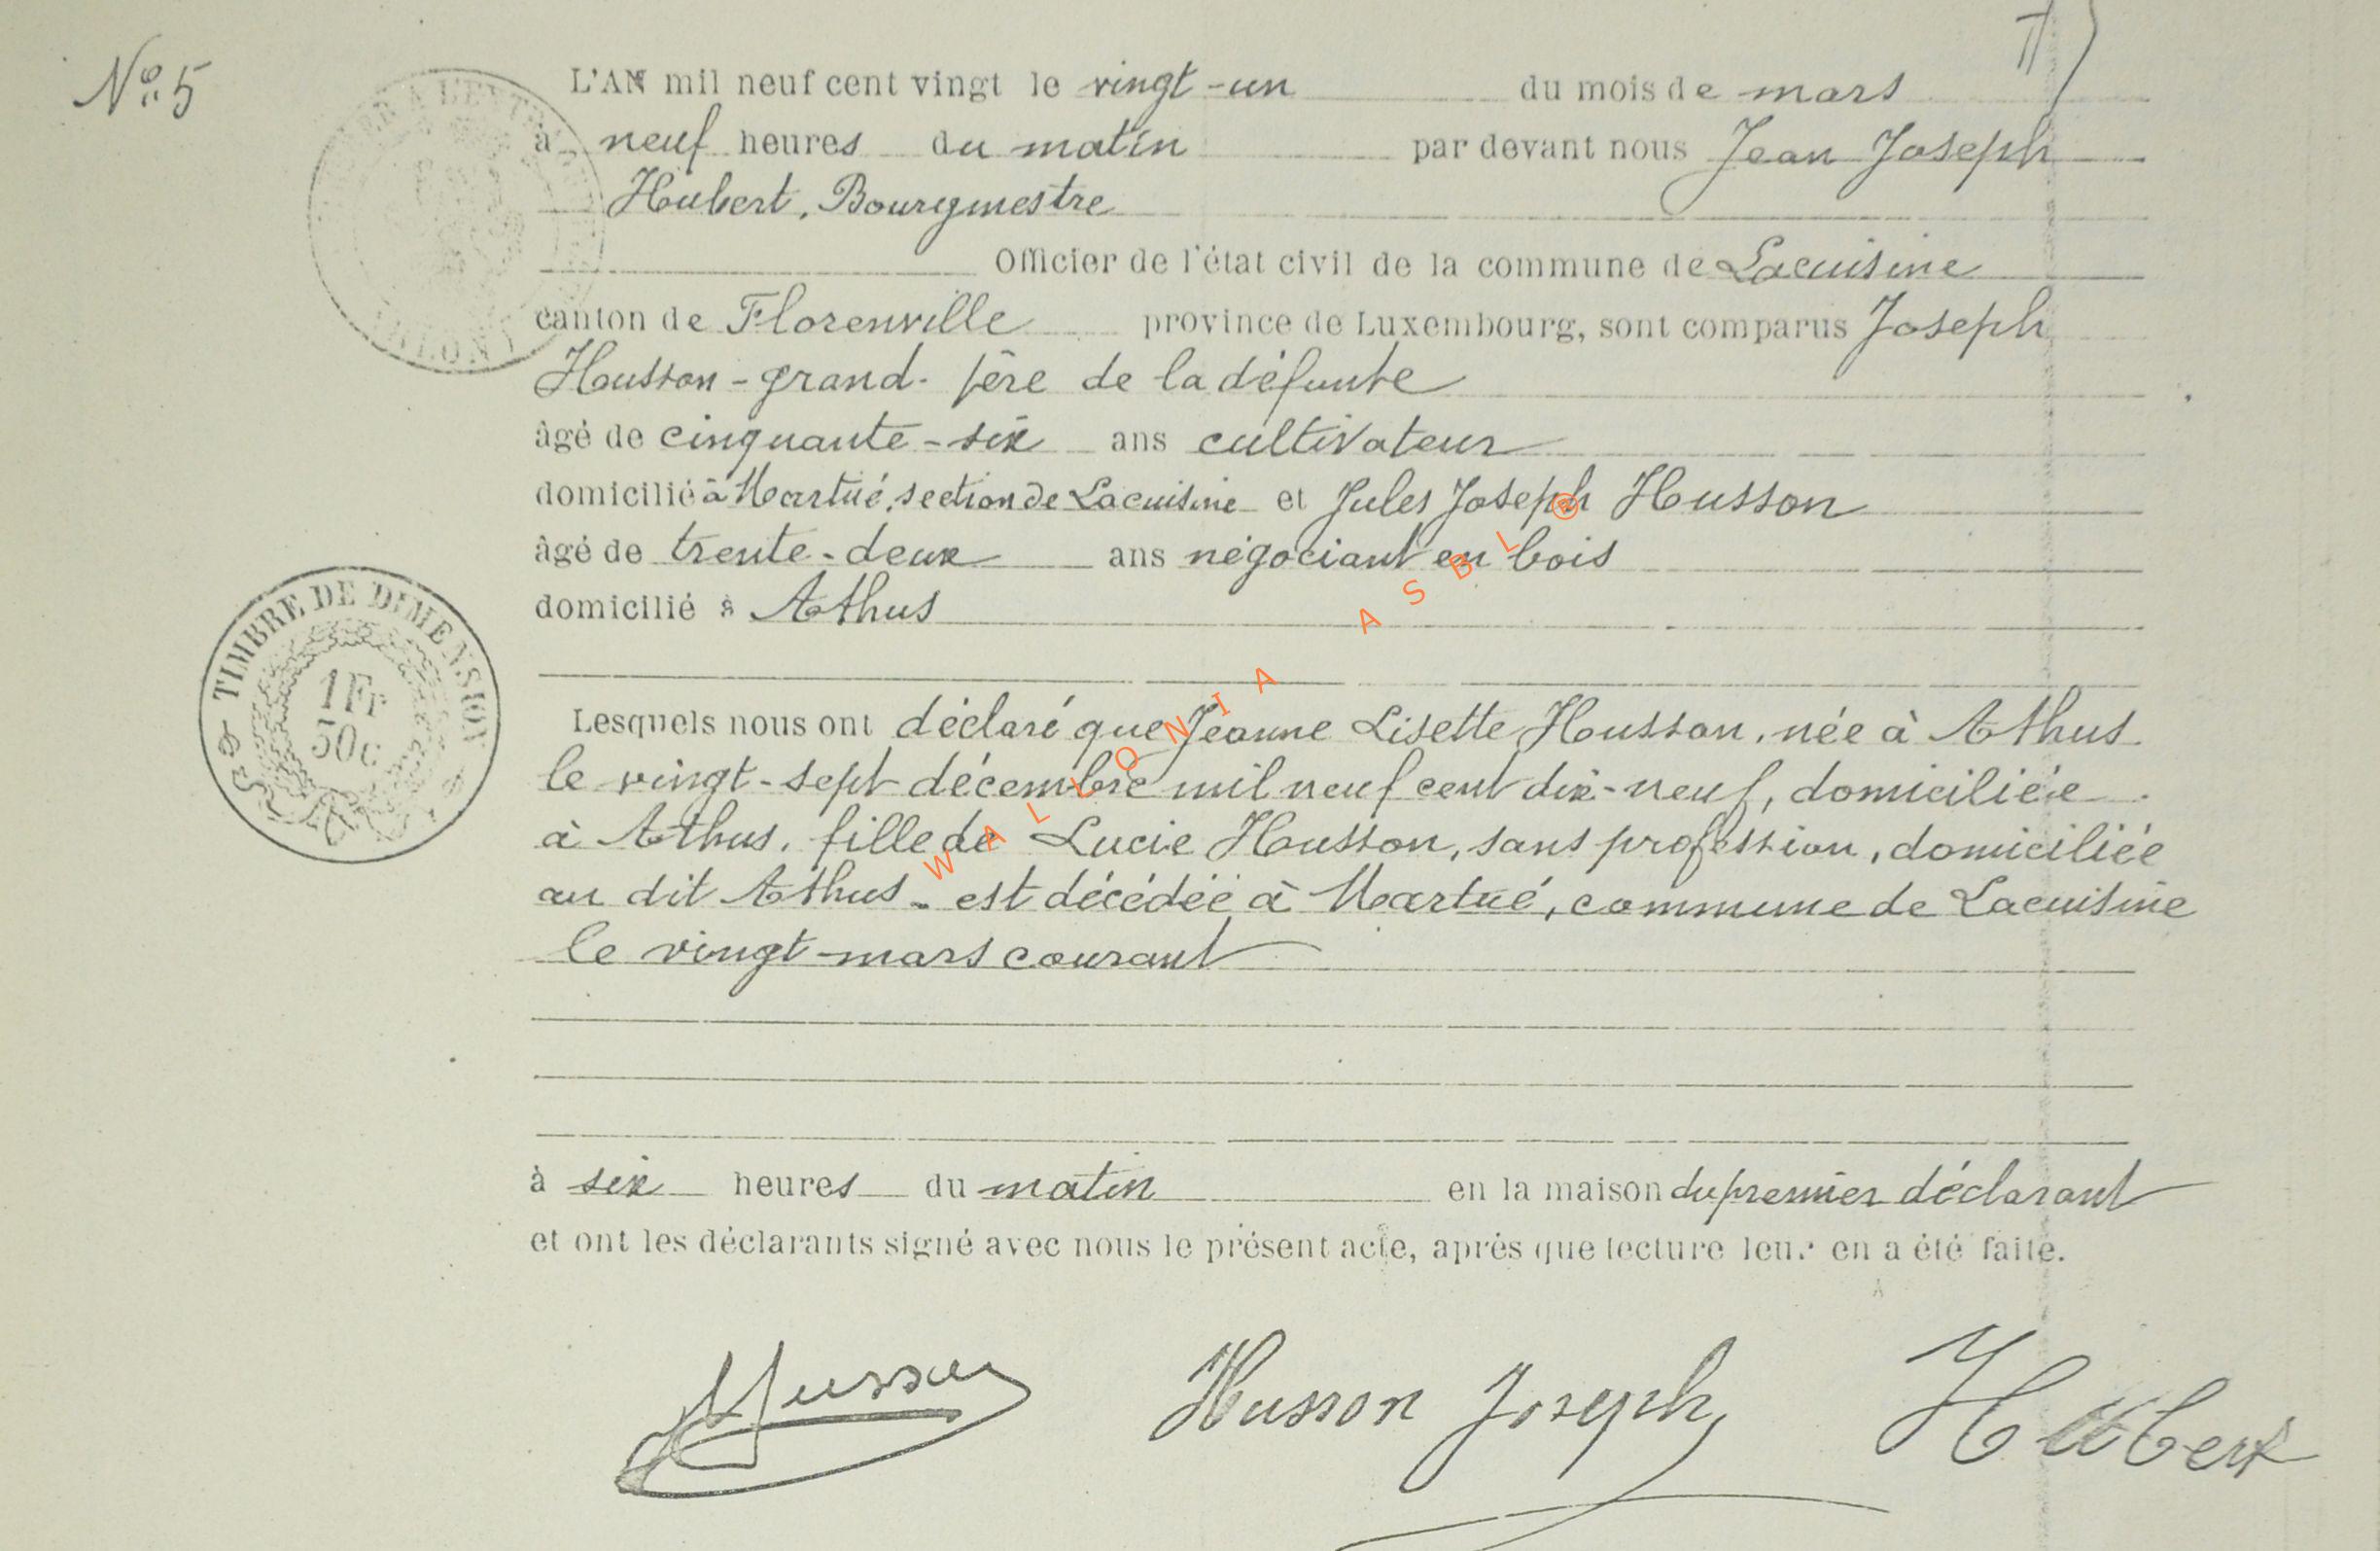 N° 5
L'AN mil neuf cent vingt le vingt-un du mois de mars
à neuf heures du matin par devant nous Jean Joseph
Hubert, Bourgmestre
Officier de l'état civil de la commune de Lacuisine
canton de Florenville province de Luxembourg, sont comparus Joseph
Husson - grand-père de la défunte
âgé de cinquante-six ans cultivateur
domicilié à Martué, section de Lacuisine et Jules Joseph Husson
âgé de trente-deux ans négociant en bois
domicilié à Athus
TIMBRE DE DIMENSION
1 Fr
50c
Lesquels nous ont déclaré que Jeanne Lisette Husson, née à Athus
le vingt-sept décembre mil neuf cent dix-neuf, domiciliée
à Athus, fille de Lucie Husson, sans profession, domiciliée
au dit Athus - est décédée à Martué, commune de Lacuisine
le vingt mars courant
à six heures du matin en la maison du premier déclarant
et ont les déclarants signé avec nous le présent acte, après que lecture leur en a été faite.
Husson Husson Joseph Hubert
WALLONIA ASBL ®